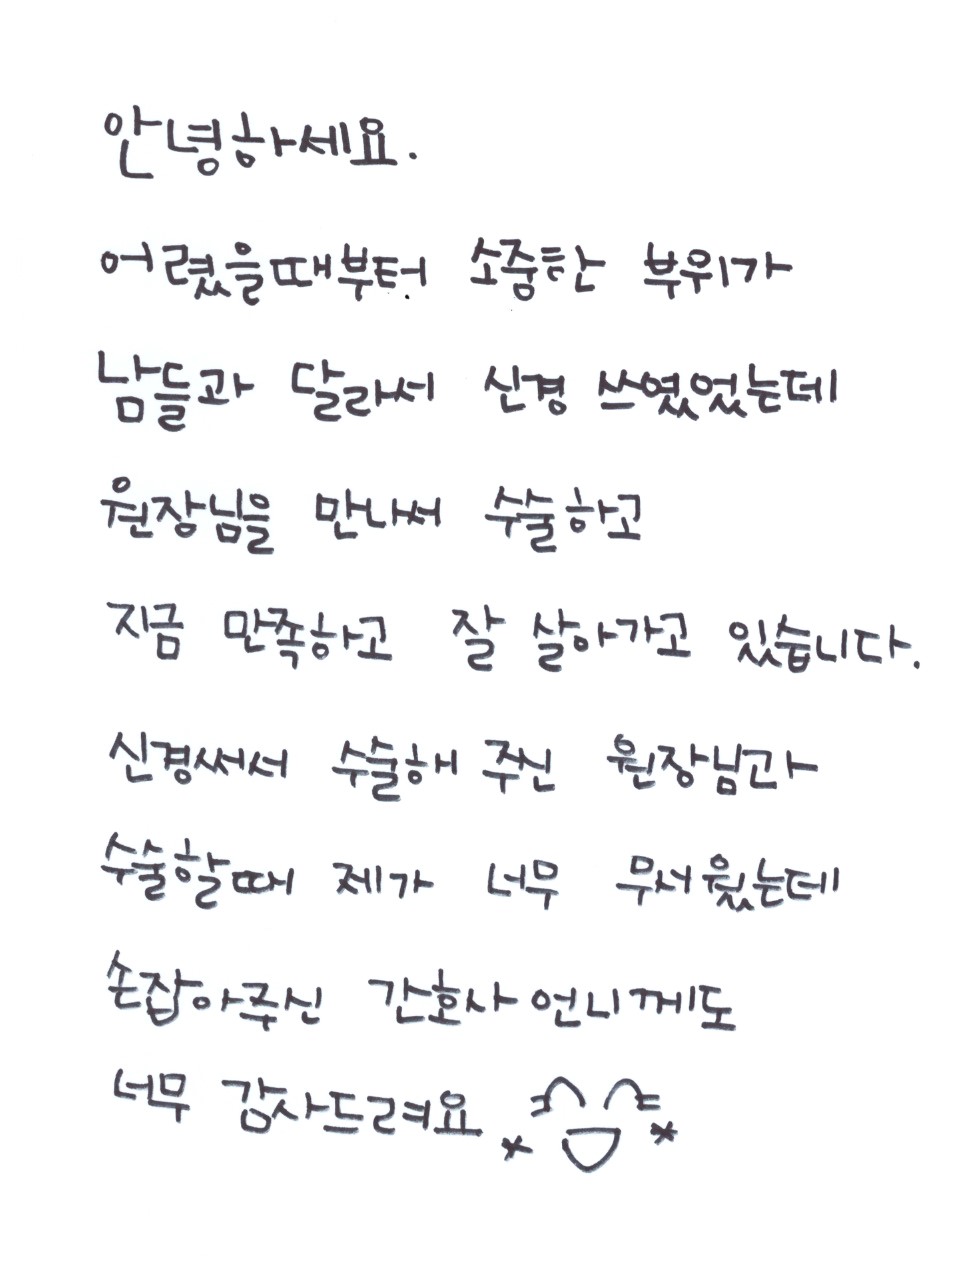 안녕하세요.
어렸을때부터 소중한 부위가
남들과 달라서 신경 쓰였었는데
원장님을 만나서 수술하고
지금 만족하고 잘 살아가고 있습니다.
신경써서 수술해 주신 원장님과
수술할때 제가 너무 무서웠는데
손잡아주신 간호사 언니께도
너무 감사드려요